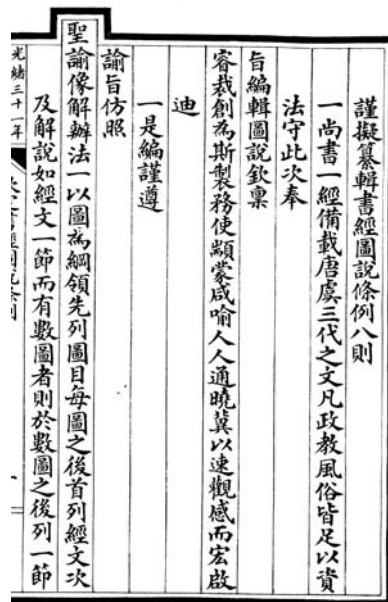 謹擬纂輯書經圖說條例八則
一尚書一經備載唐虞三代之文凡政教風俗皆足以資
法守此次奉
旨編輯圖說欽稟
睿裁創爲斯製務使顓蒙咸喻人人通曉冀以速觀感而宏啟
迪
一是編謹遵
諭旨仿照
聖諭像解辦法一以圖爲綱領先列圖目每圖之後首列經文次
及解說如經文一節而有數圖者則於數圖之後列一節
光緒三十一年